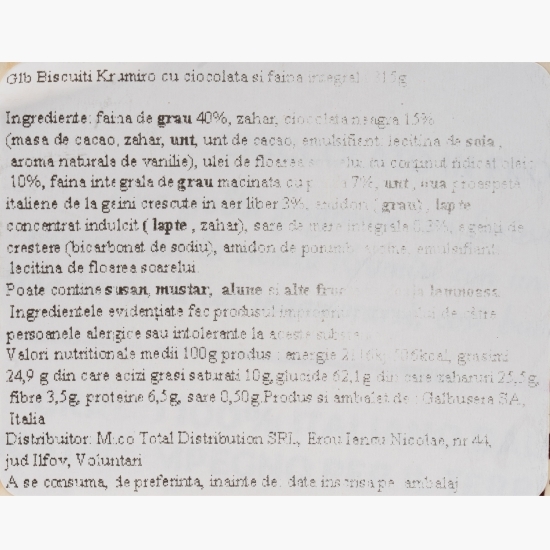 Glb Biscuiti Krumiro cu ciocolata si faina integrala 315g
Ingrediente: faina de grau 40%, zahar, ciocolata neagra 15%
(masa de cacao, zahar, unt, unt de cacao, emulsifiant: lecitina de soia,
aroma naturala de vanilie), ulei de floarea soarelui cu continut ridicat oleic
10%, faina integrala de grau macinata cu 7%, unt, oua proaspete
italiene de la gaini crescute in aer liber 3%, amidon (grau), lapte
concentrat indulcit (lapte, zahar), sare de mare integrala 0.3%, agenti de
crestere (bicarbonat de sodiu), amidon de porumb, emulsifiant
lecitina de floarea soarelui.
Poate contine susan, mustar, alune si alte fructe lemnoasa
Ingredientele evidențiate fac produsul impropriu de către
persoanele alergice sau intolerante la aceste
Valori nutritionale medii 100g produs : energie kj 506kcal, grasimi
24,9 g din care acizi grasi saturati 10g, glucide 62,1g din care zaharuri 25,5g,
fibre 3,5g, proteine 6,5g, sare 0,50g. Produs si ambalat de : Galbusera SA,
Italia
Distribuitor: M.co Total Distribution SRL, Erou Iancu Nicolae, nr 44,
jud Ilfov, Voluntari
A se consuma, de preferinta, inainte de: data inscrisa pe ambalaj